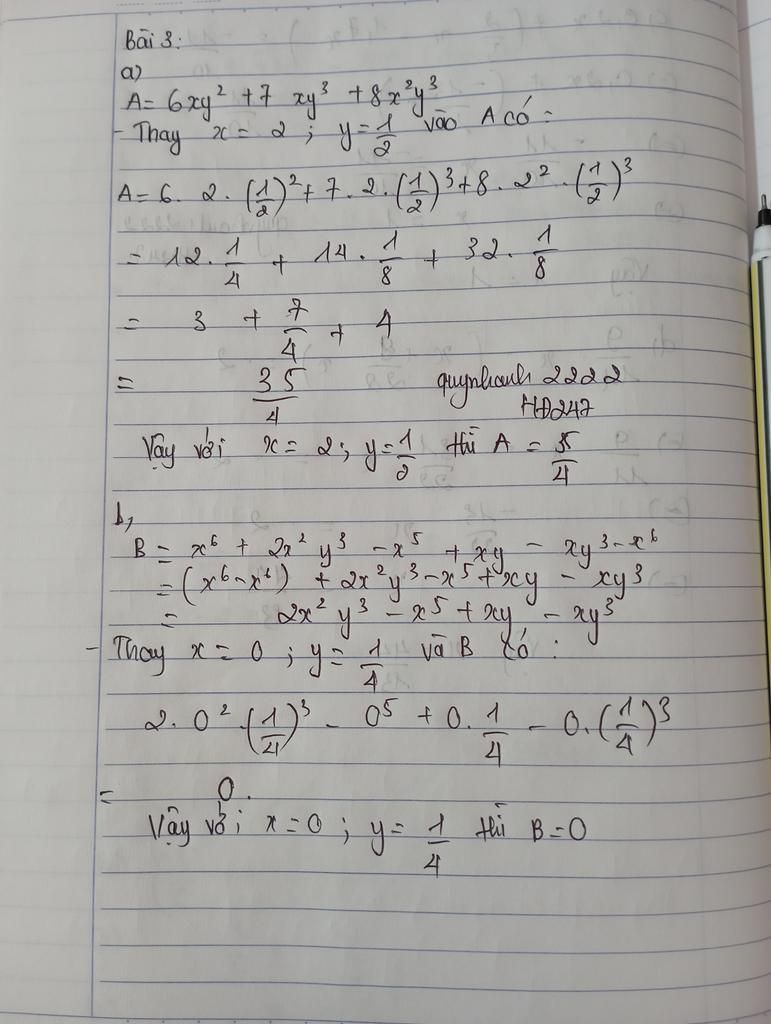 Bài 3:
a)
A = 6xy² + 7 xy³ + 8x²y³
- Thay x = 2 ; y = 1/2 vào A có :
A = 6 . 2 . (1/2)² + 7 . 2 . (1/2)³ + 8 . 2² . (1/2)³
= 12 . 1/4 + 14 . 1/8 + 32 . 1/8
= 3 + 7/4 + 4
= 35/4 quynhanh 2222
HD247
Vậy với x = 2 ; y = 1/2 thì A = 35/4
b,
B = x⁶ + 2x² y³ - x⁵ + xy - xy³ - x⁶
= (x⁶ - x⁶) + 2x² y³ - x⁵ + xy - xy³
= 2x² y³ - x⁵ + xy - xy³
- Thay x = 0 ; y = 1/4 và B có :
2 . 0² . (1/4)³ - 0⁵ + 0 . 1/4 - 0 . (1/4)³
= 0 .
Vậy với x = 0 ; y = 1/4 thì B = 0